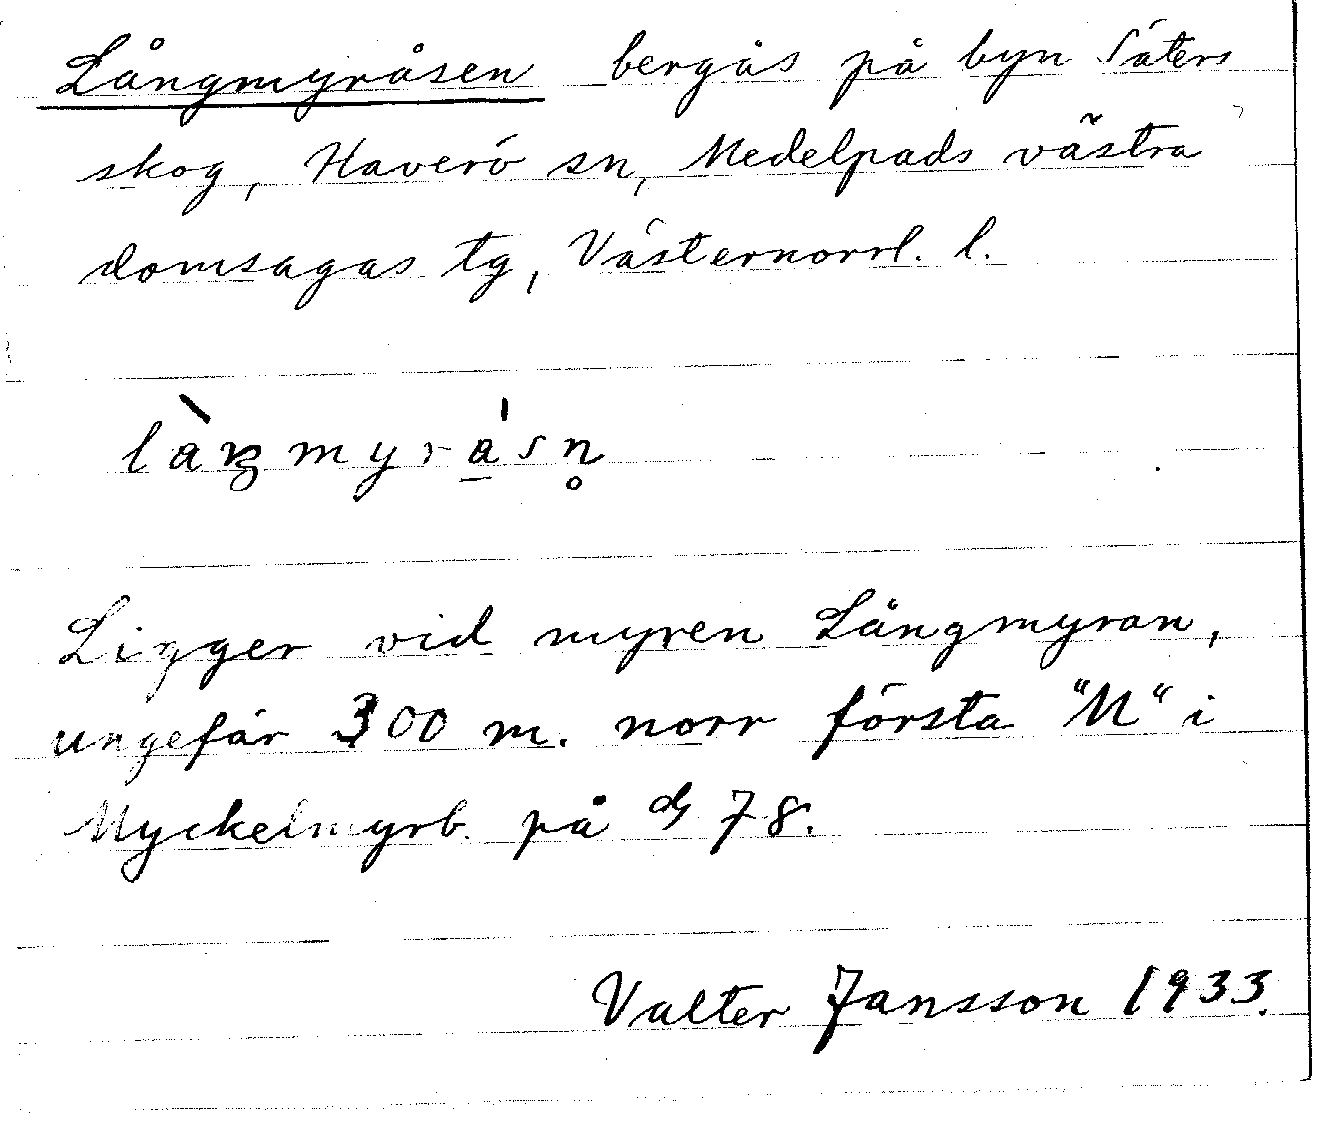 Långmyråsen bergås på byn Säters
skog, Haverö sn, Medelpads västra
domsagas tg, Västernorrl. l.
làŋmyrásn̥
Ligger vid myren Långmyran,
ungefär 300 m. norr första "M" i
Myckelmyrb. på 78.
Valter Jansson 1933.